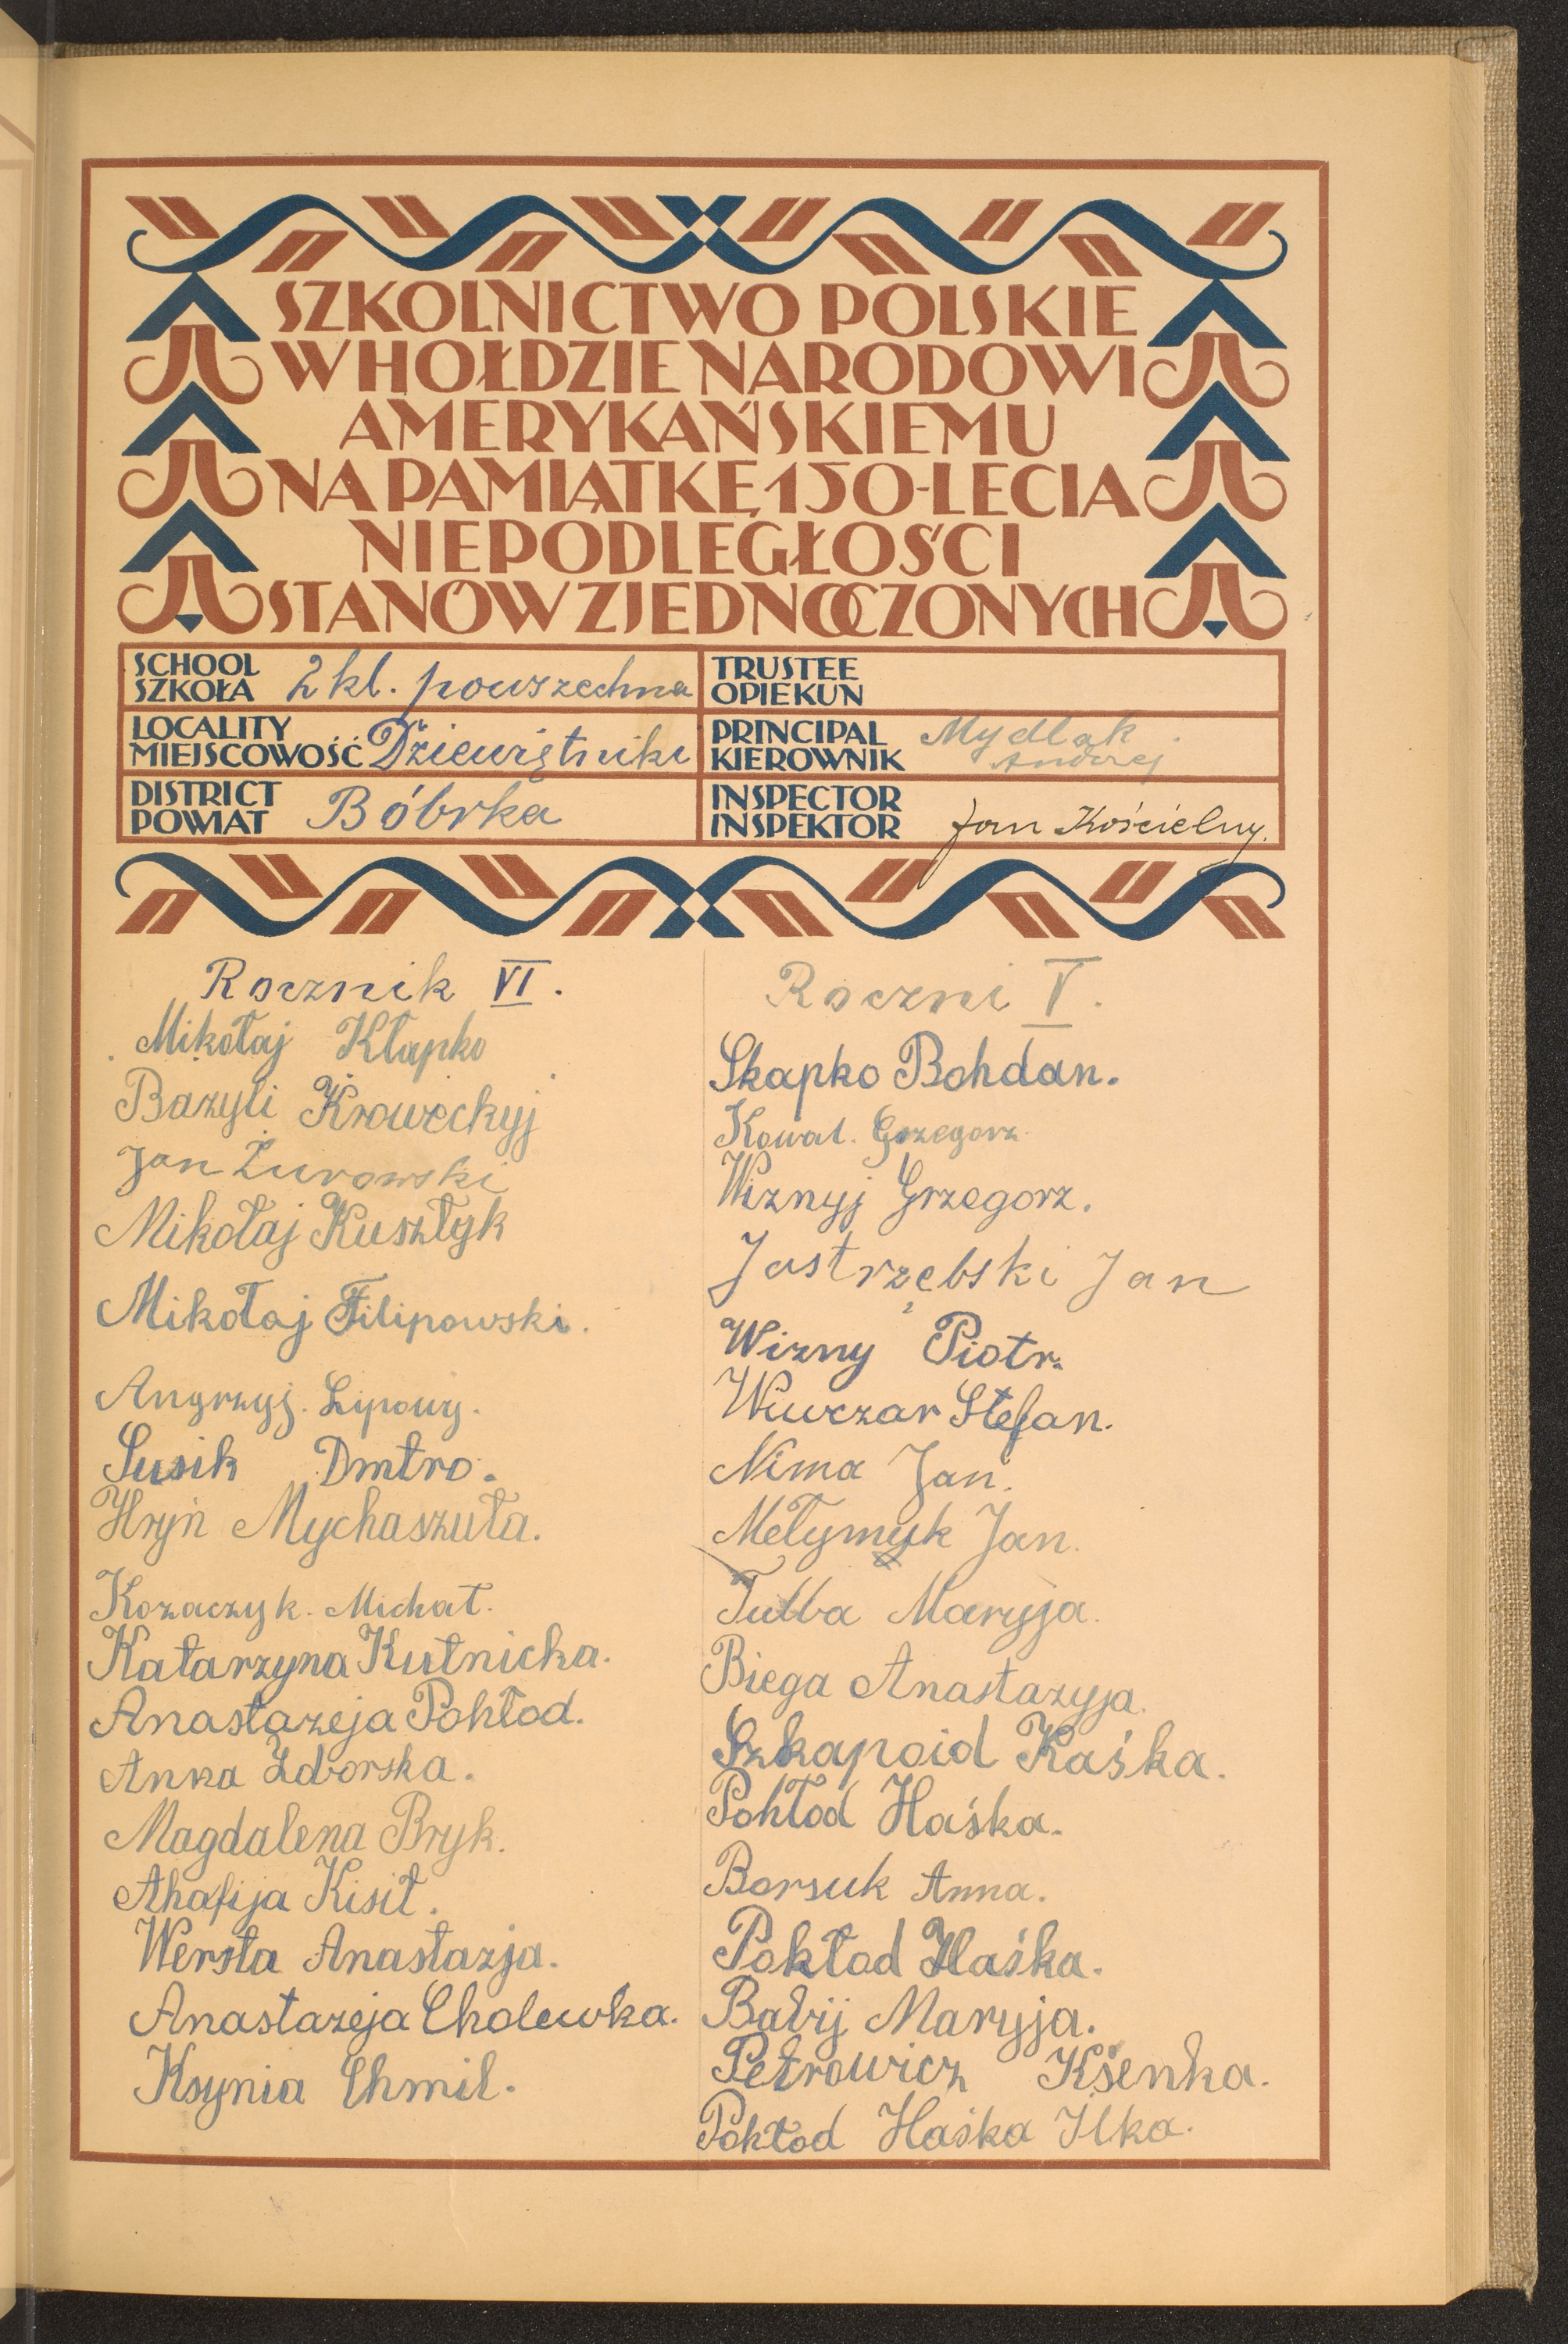 SZKOLNICTWO POLSKIE
W HOŁDZIE NARODOWI
AMERYKAŃSKIEMU
NA PAMIĄTKĘ 150-LECIA
NIEPODLEGŁOŚCI
STANÓW ZJEDNOCZONYCH
SCHOOL
SZKOŁA 2 kl. powszechna
TRUSTEE
OPIEKUN
LOCALITY
MIEJSCOWOŚĆ Dziewiętniki
PRINCIPAL
KIEROWNIK Mydlak
Andrzej
DISTRICT
POWIAT Bóbrka
INSPECTOR
INSPEKTOR Jan Kościelny.
Rocznik VI.
Mikołaj Kłapko
Bazyli Kroweckyj
Jan Żurowski
Mikołaj Kusztyk
Mikołaj Filipowski.
Angrzyj. Lipowy.
Susik Dmtro.
Hryń Mychaszuła.
Kozaczyk. Michał.
Katarzyna Kutnicka.
Anastazeja Pohłod.
Anna Zdorska.
Magdalena Bryk.
Ahafija Kisił.
Wersta Anastazja.
Anastazeja Cholewka.
Ksynia Chmil.
Roczni V.
Skapko Bohdan.
Kowal. Grzegorz.
Wiznyj Grzegorz.
Jastrzębski Jan
Wizny Piotr.
Wuwczar Stefan.
Nima Jan.
Mełymyk Jan.
Tulba Maryja.
Biega Anastazyja.
Szkapoid Kaśka.
Pohłod Haśka.
Borsuk Anna.
Pokłod Haśka.
Babij Maryja.
Petrowicz Kśenka.
Pokłod Haśka Ilka.